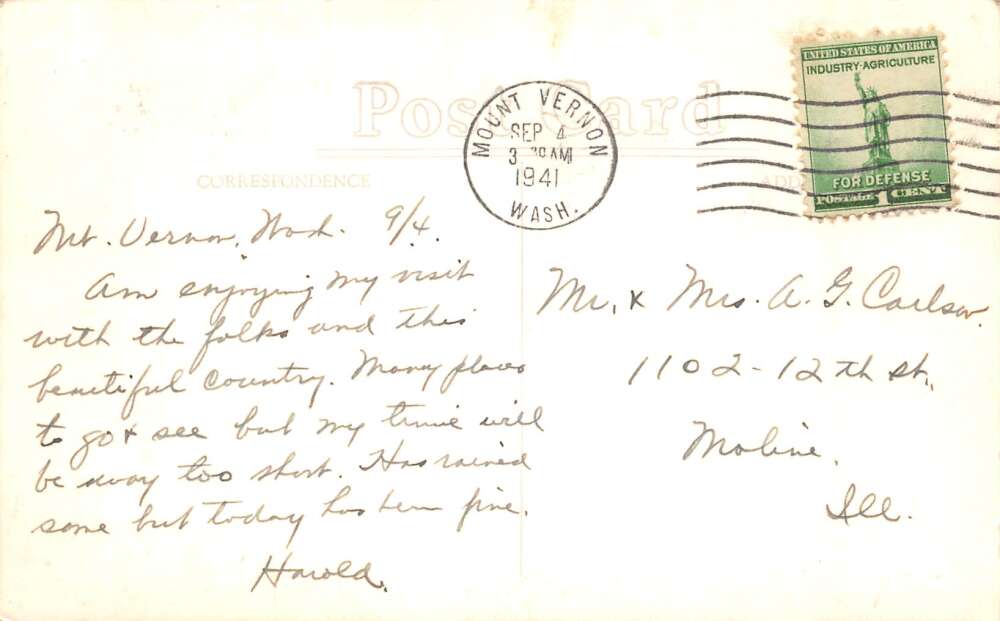 Post Card
CORRESPONDENCE
MOUNT VERNON
SEP 4
3 30 AM
1941
WASH.
UNITED STATES OF AMERICA
INDUSTRY-AGRICULTURE
FOR DEFENSE
POSTAGE 1 CENT
Mt. Vernon, Wash. 9/4.
Am enjoying my visit
with the folks and this
beautiful country. Many places
to go & see but my time will
be way too short. Has rained
some but today has been fine.
Harold.
Mr. & Mrs. A. G. Carlson.
1102-12th St.,
Moline,
Ill.